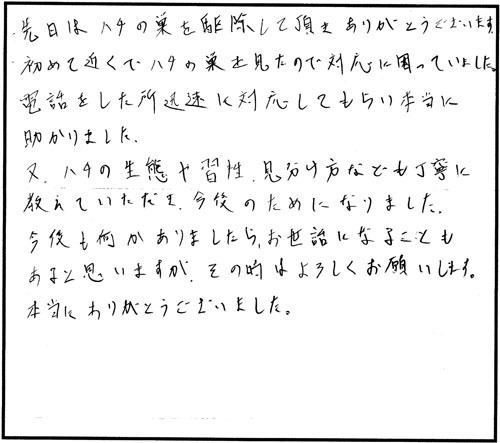 先日はハチの巣を駆除して頂きありがとうございます
初めて近くでハチの巣を見たので対応に困っていました。
電話をした所迅速に対応してもらい本当に
助かりました.
又、ハチの生態や習性、見分け方なども丁寧に
教えていただき、今後のためになりました.
今後も何かありましたら、お世話になることも
あると思いますが、その時はよろしくお願いします。
本当にありがとうございました。